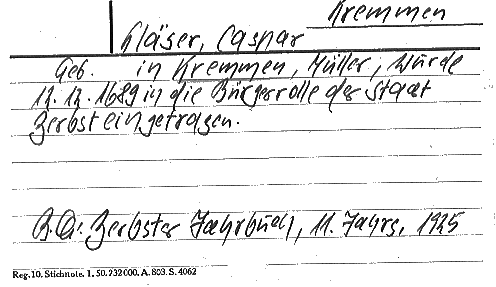 Kremmen
Gläser, Caspar
Geb. in Kremmen, Müller, wurde
12.12.1689 in die Bürgerrolle der Stadt
Zerbst eingetragen.
B.Qu: Zerbster Jahrbuch, 11. Jahrg, 1925
Reg.10. Stichnote. 1. 50. 232000. A. 803. S. 4062